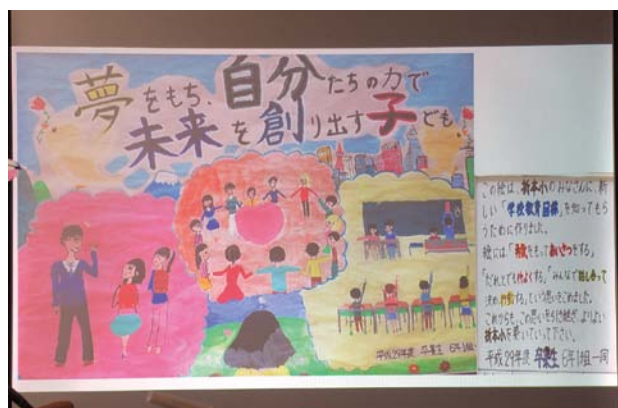 夢をもち、自分たちの力で
未来を創り出す子ども
平成29年度 卒業生 6年1組一同
この絵は、新本小のみなさんに、新
しい「学校教育目標」を知ってもら
うために作りました。
絵には「を もってあいさつをする」
「だれとでも仲よくする」「みんなで話し合って
決め、行動する」という思いをこめました。
これからも、この思いを引き継ぎ、よりよい
新本小を築いていって下さい。
平成29年度 卒業生 6年1組一同